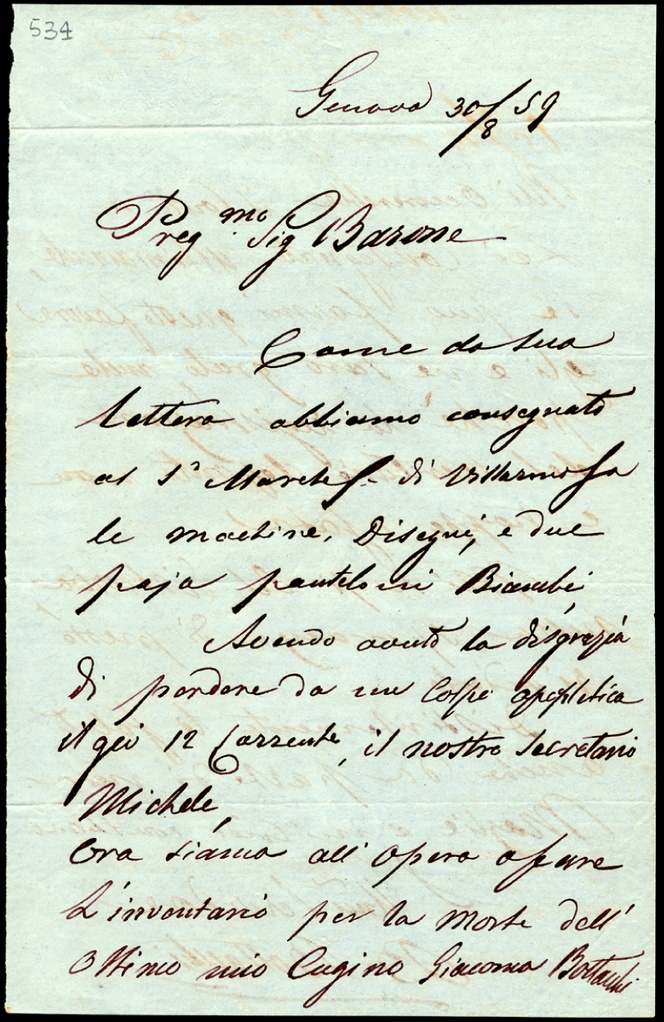 534
Genova 30/8 59
Preg.mo Sig Barone
Come da sua
lettera abbiamo consegnato
al S.r Marchese di Villarmosa
le machine, Disegni, e due
paja pantaloni Bianchi
Avendo avuto la disgrazia
di perdere da un Colpo apopletico
il 12 Corrente, il nostro Secretario
Michele,
Ora siamo all' Opera a fare
L'inventario per la Morte dell'
Ottimo mio Cugino Giacomo